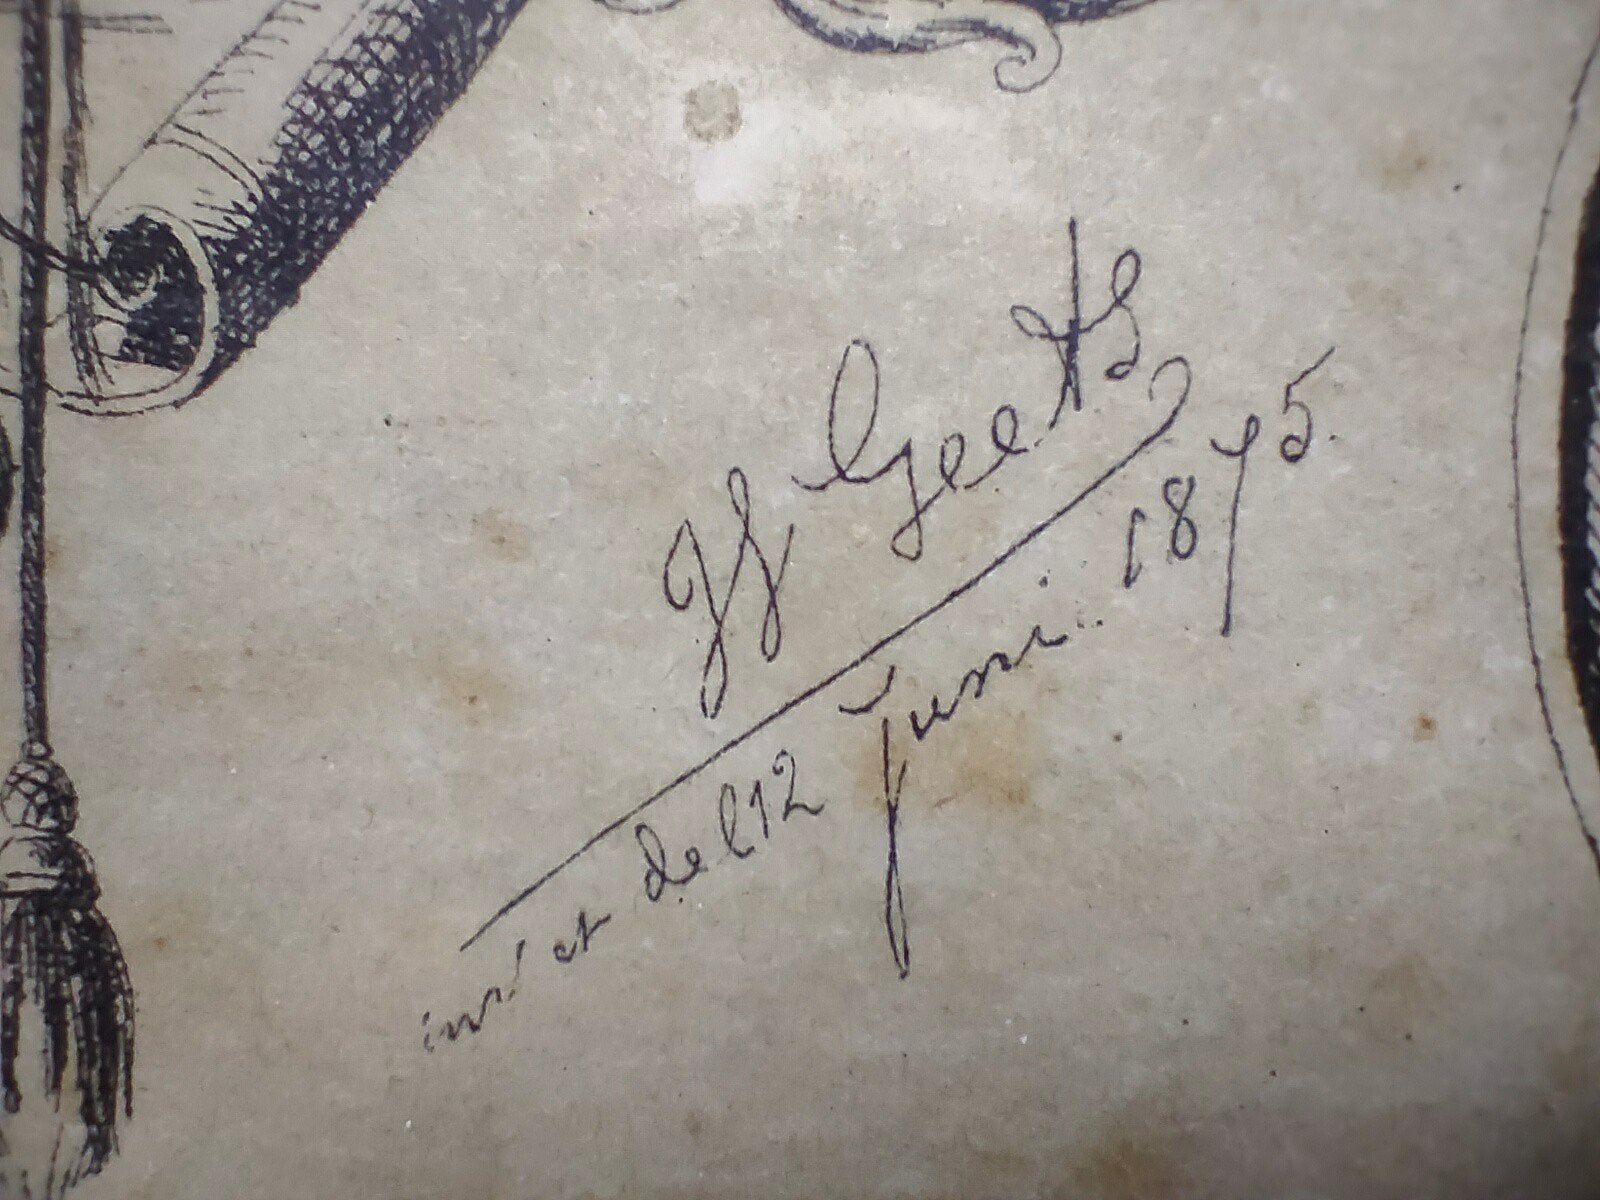 JF Geets
inv! et del 12 juni. 1875.